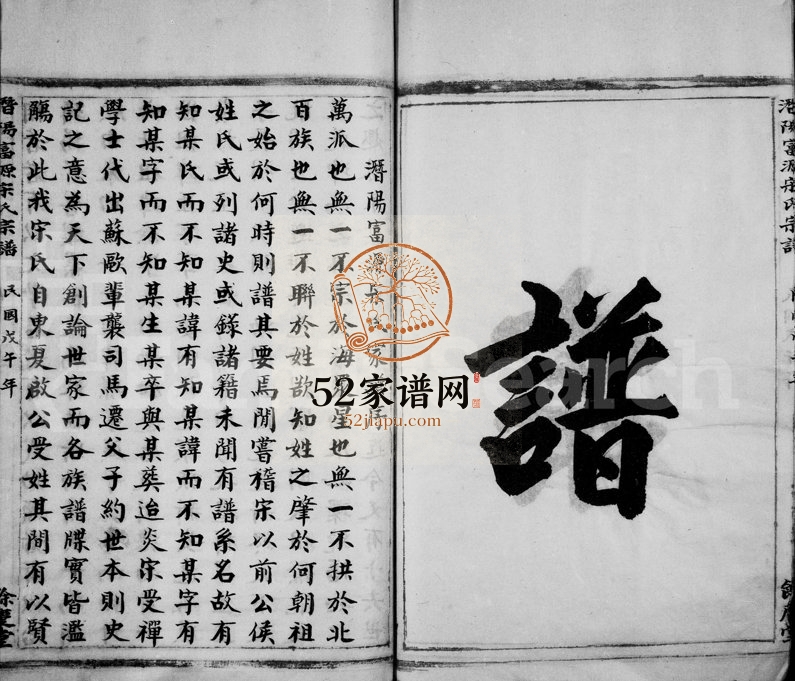 譜
潛陽富源宋氏宗譜
餘慶堂
潛陽富
萬派也無一不宗於海
星也無一不拱於北
百族也無一不聯於姓欲知姓之肇於何朝祖
之始於何時則譜其要焉閒嘗稽宋以前公侯
姓氏或列諸史或錄諸籍未聞有譜系名故有
知某氏而不知某諱有知某諱而不知某字有
知某字而不知某生某卒與某葬迨炎宋受禪
學士代出蘇歐輩襲司馬遷父子約世本則史
記之意為天下創論世家而各族譜牒實皆濫
觴於此我宋氏自東夏啟公受姓其間有以賢
潛陽富源宋氏宗譜
民國戊午年
餘慶堂
52家谱网
52jiapu.com